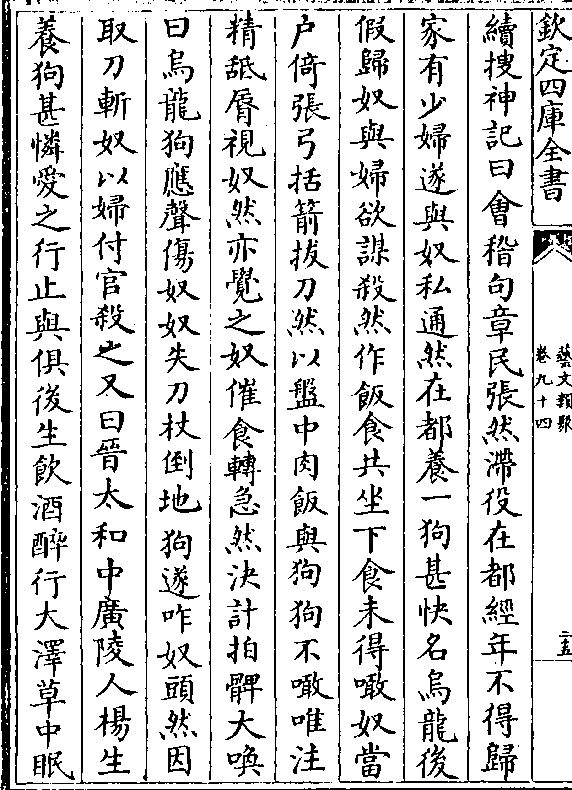 欽定四庫全書
藝文類聚
卷九十四
二五
續搜神記曰會稽句章民張然滯役在都經年不得歸
家有少婦遂與奴私通然在都養一狗甚快名烏龍後
假歸奴與婦欲謀殺然作飯食共坐下食未得噉奴當
户倚張弓括箭拔刀然以盤中肉飯與狗狗不噉唯注
精舐脣視奴然亦覺之奴催食轉急然決計拍髀大喚
曰烏龍狗應聲傷奴奴失刀杖倒地狗遂咋奴頭然因
取刀斬奴以婦付官殺之又曰晉太和中廣陵人楊生
養狗甚憐愛之行止與俱後生飲酒醉行大澤草中眠